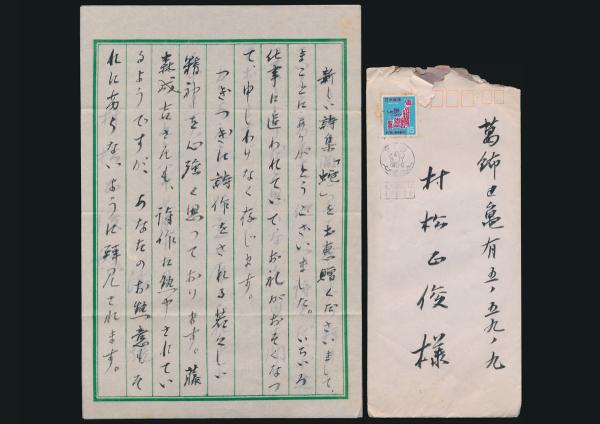 新しい詩集「蛇」を御恵贈くださいまして、
まことにありがとうございました。いろいろ
仕事に追われていて、お礼がおそくなつ
て、お申しわけなく存じます。
つぎつぎに詩作をされる若々しい
精神を心強く思っております。藤
森成吉さんも、詩作に熱中されてい
るようですが、あなたのお熱意もそ
れに劣らないように拝見されます。
葛飾区亀有五ノ五九ノ九
村松正俊様
日本郵便
15